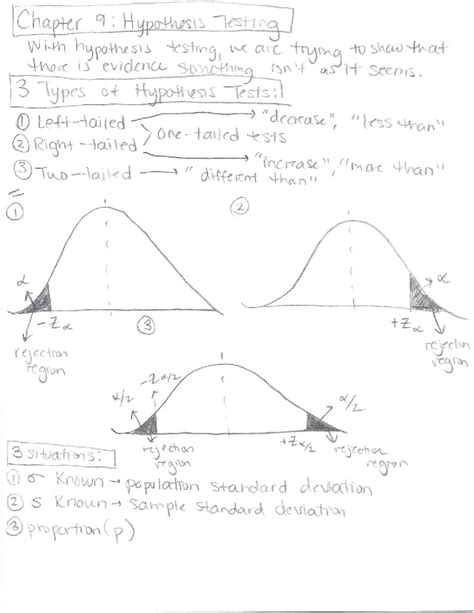 Chapter 9: Hypothesis Testing
With hypothesis testing, we are trying to show that
there is evidence something isn't as it seems.
3 Types of Hypothesis Tests:
① Left-tailed → "decrease", "less than"
② Right-tailed > One-tailed tests
"increase", "more than"
③ Two-tailed → "different than"
①
②
α
-Zα
rejection
region
α
+Zα
rejection
region
③
α/2
-Zα/2
rejection
region
α/2
+Zα/2
rejection
region
3 situations:
① σ Known → population standard deviation
② s Known → sample standard deviation
③ proportion (p)